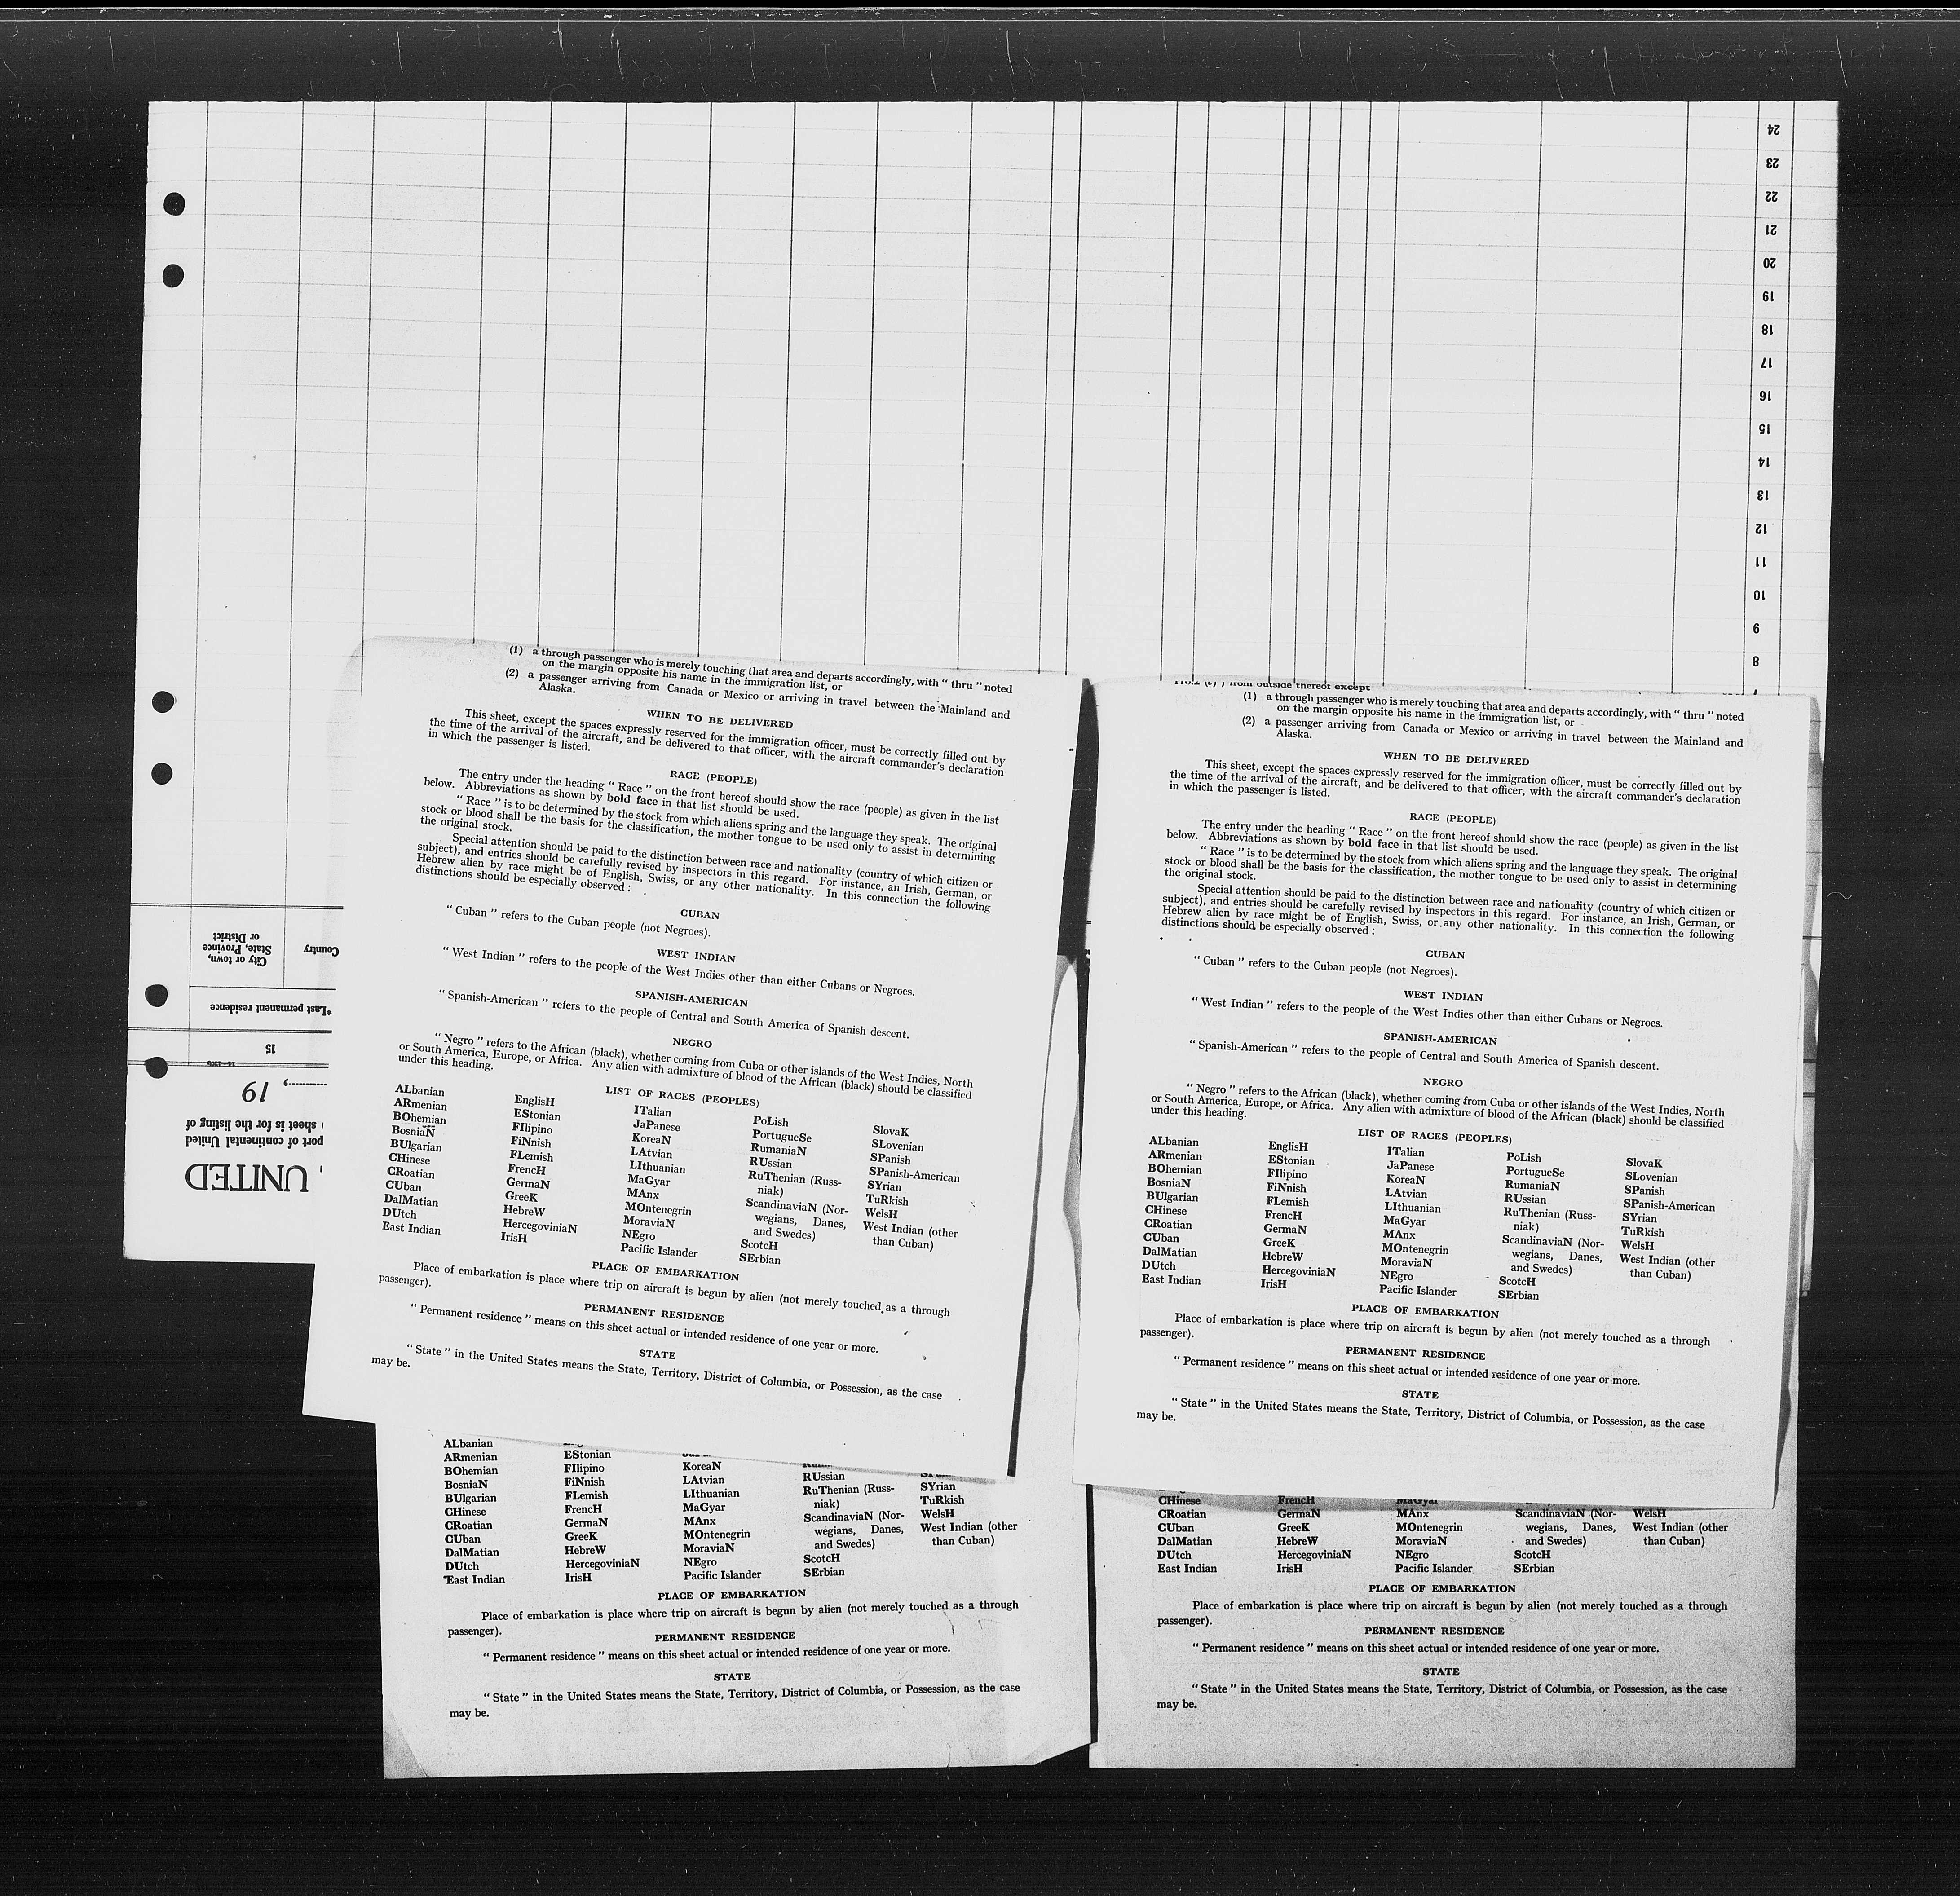 24
23
22
21
20
19
18
17
16
15
14
13
12
11
10
9
8
City or town,
State, Province
or District
Country
*Last permanent residence
15
, 19
sheet is for the listing of
port of continental United
UNITED
(1) a through passenger who is merely touching that area and departs accordingly, with “ thru ” noted
on the margin opposite his name in the immigration list, or
(2) a passenger arriving from Canada or Mexico or arriving in travel between the Mainland and
Alaska.
WHEN TO BE DELIVERED
This sheet, except the spaces expressly reserved for the immigration officer, must be correctly filled out by
the time of the arrival of the aircraft, and be delivered to that officer, with the aircraft commander's declaration
in which the passenger is listed.
RACE (PEOPLE)
The entry under the heading “ Race ” on the front hereof should show the race (people) as given in the list
below. Abbreviations as shown by bold face in that list should be used.
“ Race ” is to be determined by the stock from which aliens spring and the language they speak. The original
stock or blood shall be the basis for the classification, the mother tongue to be used only to assist in determining
the original stock.
Special attention should be paid to the distinction between race and nationality (country of which citizen or
subject), and entries should be carefully revised by inspectors in this regard. For instance, an Irish, German, or
Hebrew alien by race might be of English, Swiss, or any other nationality. In this connection the following
distinctions should be especially observed :
CUBAN
“ Cuban ” refers to the Cuban people (not Negroes).
WEST INDIAN
“ West Indian ” refers to the people of the West Indies other than either Cubans or Negroes.
SPANISH-AMERICAN
“ Spanish-American ” refers to the people of Central and South America of Spanish descent.
NEGRO
“ Negro ” refers to the African (black), whether coming from Cuba or other islands of the West Indies, North
or South America, Europe, or Africa. Any alien with admixture of blood of the African (black) should be classified
under this heading.
LIST OF RACES (PEOPLES)
ALbanian
ARmenian
BOhemian
BosniaN
BUlgarian
CHinese
CRoatian
CUban
DalMatian
DUtch
East Indian
EnglisH
EStonian
FIlipino
FiNnish
FLemish
FrencH
GermaN
GreeK
HebreW
HercegoviniaN
IrisH
ITalian
JaPanese
KoreaN
LAtvian
LIthuanian
MaGyar
MAnx
MOntenegrin
MoraviaN
NEgro
Pacific Islander
PoLish
PortugueSe
RumaniaN
RUssian
RuThenian (Russ-
niak)
ScandinaviaN (Nor-
wegians, Danes,
and Swedes)
ScotcH
SErbian
SlovaK
SLovenian
SPanish
SPanish-American
SYrian
TuRkish
WelsH
West Indian (other
than Cuban)
PLACE OF EMBARKATION
Place of embarkation is place where trip on aircraft is begun by alien (not merely touched as a through
passenger).
PERMANENT RESIDENCE
“ Permanent residence ” means on this sheet actual or intended residence of one year or more.
STATE
“ State ” in the United States means the State, Territory, District of Columbia, or Possession, as the case
may be.
from outside thereof except
(1) a through passenger who is merely touching that area and departs accordingly, with “ thru ” noted
on the margin opposite his name in the immigration list, or
(2) a passenger arriving from Canada or Mexico or arriving in travel between the Mainland and
Alaska.
WHEN TO BE DELIVERED
This sheet, except the spaces expressly reserved for the immigration officer, must be correctly filled out by
the time of the arrival of the aircraft, and be delivered to that officer, with the aircraft commander's declaration
in which the passenger is listed.
RACE (PEOPLE)
The entry under the heading “ Race ” on the front hereof should show the race (people) as given in the list
below. Abbreviations as shown by bold face in that list should be used.
“ Race ” is to be determined by the stock from which aliens spring and the language they speak. The original
stock or blood shall be the basis for the classification, the mother tongue to be used only to assist in determining
the original stock.
Special attention should be paid to the distinction between race and nationality (country of which citizen or
subject), and entries should be carefully revised by inspectors in this regard. For instance, an Irish, German, or
Hebrew alien by race might be of English, Swiss, or any other nationality. In this connection the following
distinctions should be especially observed :
CUBAN
“ Cuban ” refers to the Cuban people (not Negroes).
WEST INDIAN
“ West Indian ” refers to the people of the West Indies other than either Cubans or Negroes.
SPANISH-AMERICAN
“ Spanish-American ” refers to the people of Central and South America of Spanish descent.
NEGRO
“ Negro ” refers to the African (black), whether coming from Cuba or other islands of the West Indies, North
or South America, Europe, or Africa. Any alien with admixture of blood of the African (black) should be classified
under this heading.
LIST OF RACES (PEOPLES)
ALbanian
ARmenian
BOhemian
BosniaN
BUlgarian
CHinese
CRoatian
CUban
DalMatian
DUtch
East Indian
EnglisH
EStonian
FIlipino
FiNnish
FLemish
FrencH
GermaN
GreeK
HebreW
HercegoviniaN
IrisH
ITalian
JaPanese
KoreaN
LAtvian
LIthuanian
MaGyar
MAnx
MOntenegrin
MoraviaN
NEgro
Pacific Islander
PoLish
PortugueSe
RumaniaN
RUssian
RuThenian (Russ-
niak)
ScandinaviaN (Nor-
wegians, Danes,
and Swedes)
ScotcH
SErbian
SlovaK
SLovenian
SPanish
SPanish-American
SYrian
TuRkish
WelsH
West Indian (other
than Cuban)
PLACE OF EMBARKATION
Place of embarkation is place where trip on aircraft is begun by alien (not merely touched as a through
passenger).
PERMANENT RESIDENCE
“ Permanent residence ” means on this sheet actual or intended residence of one year or more.
STATE
“ State ” in the United States means the State, Territory, District of Columbia, or Possession, as the case
may be.
ALbanian
ARmenian
BOhemian
BosniaN
BUlgarian
CHinese
CRoatian
CUban
DalMatian
DUtch
East Indian
EStonian
FIlipino
FiNnish
FLemish
FrencH
GermaN
GreeK
HebreW
HercegoviniaN
IrisH
KoreaN
LAtvian
LIthuanian
MaGyar
MAnx
MOntenegrin
MoraviaN
NEgro
Pacific Islander
RUssian
RuThenian (Russ-
niak)
ScandinaviaN (Nor-
wegians, Danes,
and Swedes)
ScotcH
SErbian
SYrian
TuRkish
WelsH
West Indian (other
than Cuban)
PLACE OF EMBARKATION
Place of embarkation is place where trip on aircraft is begun by alien (not merely touched as a through
passenger).
PERMANENT RESIDENCE
“ Permanent residence ” means on this sheet actual or intended residence of one year or more.
STATE
“ State ” in the United States means the State, Territory, District of Columbia, or Possession, as the case
may be.
CHinese
CRoatian
CUban
DalMatian
DUtch
East Indian
FrencH
GermaN
GreeK
HebreW
HercegoviniaN
IrisH
MaGyar
MAnx
MOntenegrin
MoraviaN
NEgro
Pacific Islander
ScandinaviaN (Nor-
wegians, Danes,
and Swedes)
ScotcH
SErbian
WelsH
West Indian (other
than Cuban)
PLACE OF EMBARKATION
Place of embarkation is place where trip on aircraft is begun by alien (not merely touched as a through
passenger).
PERMANENT RESIDENCE
“ Permanent residence ” means on this sheet actual or intended residence of one year or more.
STATE
“ State ” in the United States means the State, Territory, District of Columbia, or Possession, as the case
may be.